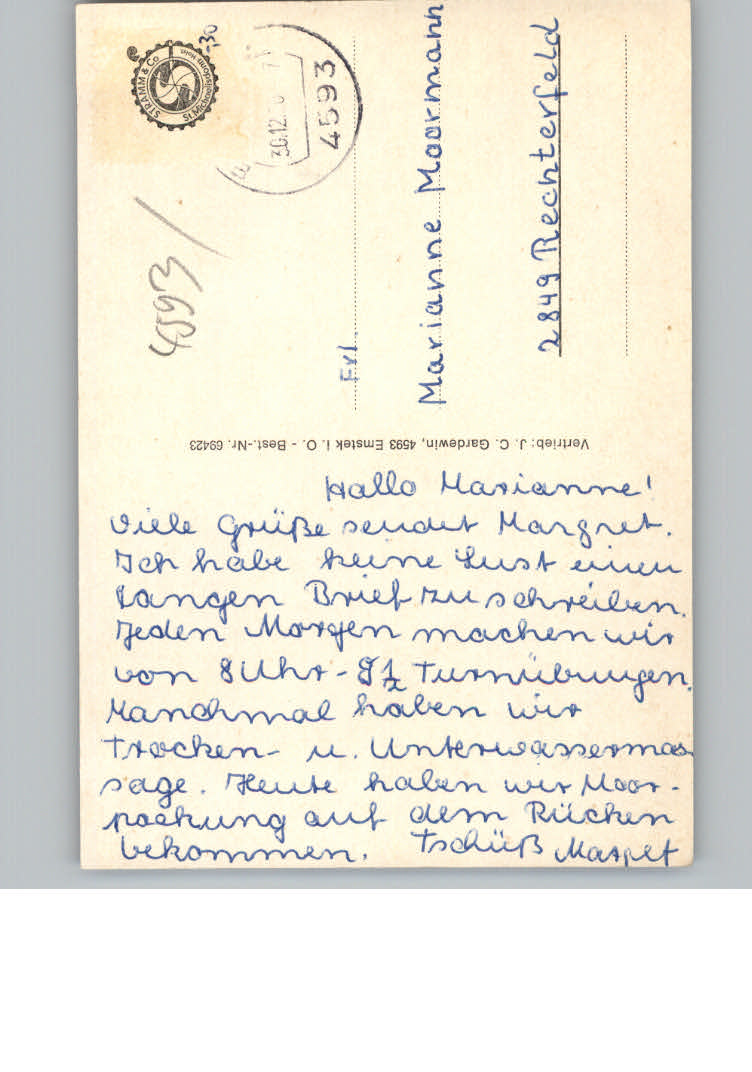 Hallo Marianne!
Viele Grüße sendet Margret.
Ich habe keine Lust einen
langen Brief zu schreiben.
Jeden Morgen machen wir
von 8 Uhr - 9 1/2 Turnübungen.
Manchmal haben wir
trocken- u. Unterwassermas
sage. Heute haben wir Moor-
packung auf dem Rücken
bekommen. Tschüß Margret
Vertrieb: J. C. Gardewin, 4593 Emstek i. O. - Best.-Nr. 69423
Frl.
Marianne Moormann
2849 Rechterfeld
4593
30.12.
4593
-30
STRAMM & Co
St. Michaelisdonn Holst